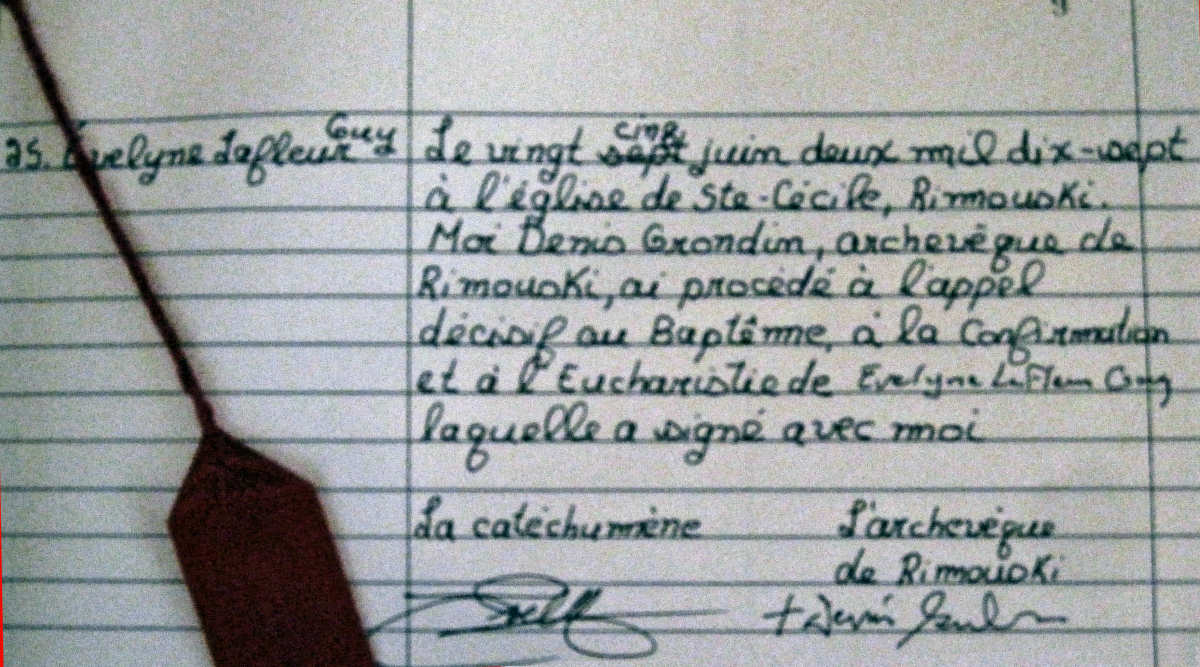 25. Évelyne Lafleur Guy
Le vingt cinq sept juin deux mil dix-sept
à l'église de Ste-Cécile, Rimouski.
Moi Denis Grondin, archevêque de
Rimouski, ai procédé à l'appel
décisif au Baptême, à la Confirmation
et à l'Eucharistie de Evelyne Lafleur Guy
laquelle a signé avec moi
La catéchumène
L'archevêque
de Rimouski
+ Denis